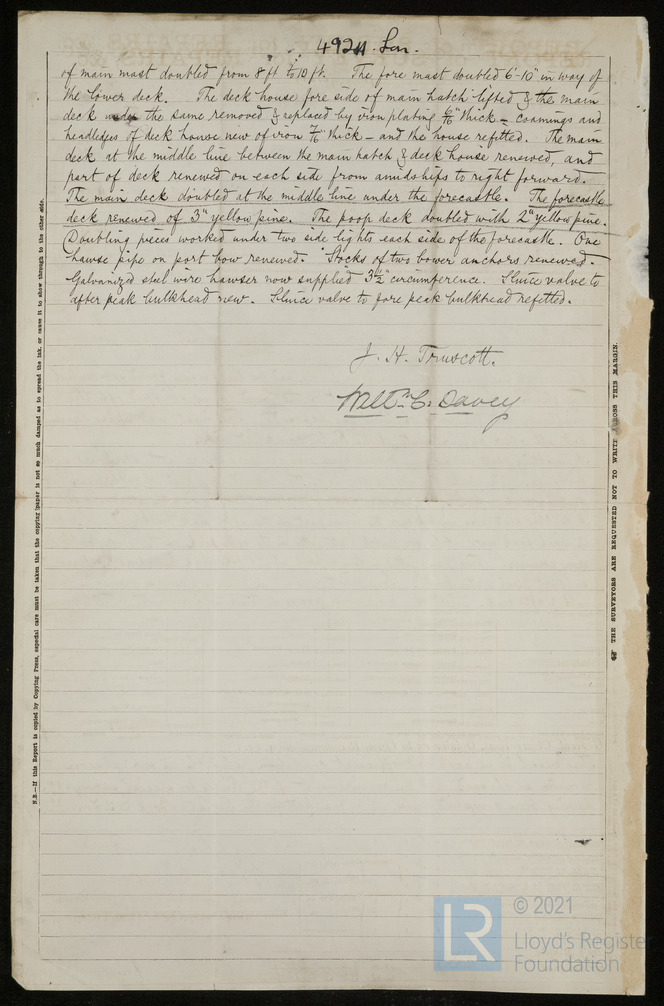 492 Lon.
of main mast doubled from 8 ft to 10 ft. The fore mast doubled 6'-10" in way of
the lower deck. The deck house fore side of main hatch lifted & the main
deck under the same removed & replaced by iron plating 6/16" thick - coamings and
headledges of deck house new of iron 7/16" thick - and the house refitted. The main
deck at the middle line between the main hatch & deck house renewed, and
part of deck renewed on each side from amidships to right forward.
The main deck doubled at the middle line under the forecastle. The forecastle
deck renewed of 3" yellow pine. The poop deck doubled with 2" yellow pine.
Doubling pieces worked under two side lights each side of the forecastle. One
hawse pipe on port bow renewed. Stocks of two bower anchors renewed.
Galvanized steel wire hawser now supplied 3 1/2" circumference. Sluice valve to
after peak bulkhead new. Sluice valve to fore peak bulkhead refitted.
J. H. Truscott.
Willm. C. Davey
N.B.—If this Report is copied by Copying Press, especial care must be taken that the copying paper is not so much damped as to spread the ink, or cause it to show through to the other side.
THE SURVEYORS ARE REQUESTED NOT TO WRITE ACROSS THIS MARGIN.
LR
© 2021
Lloyd's Register
Foundation